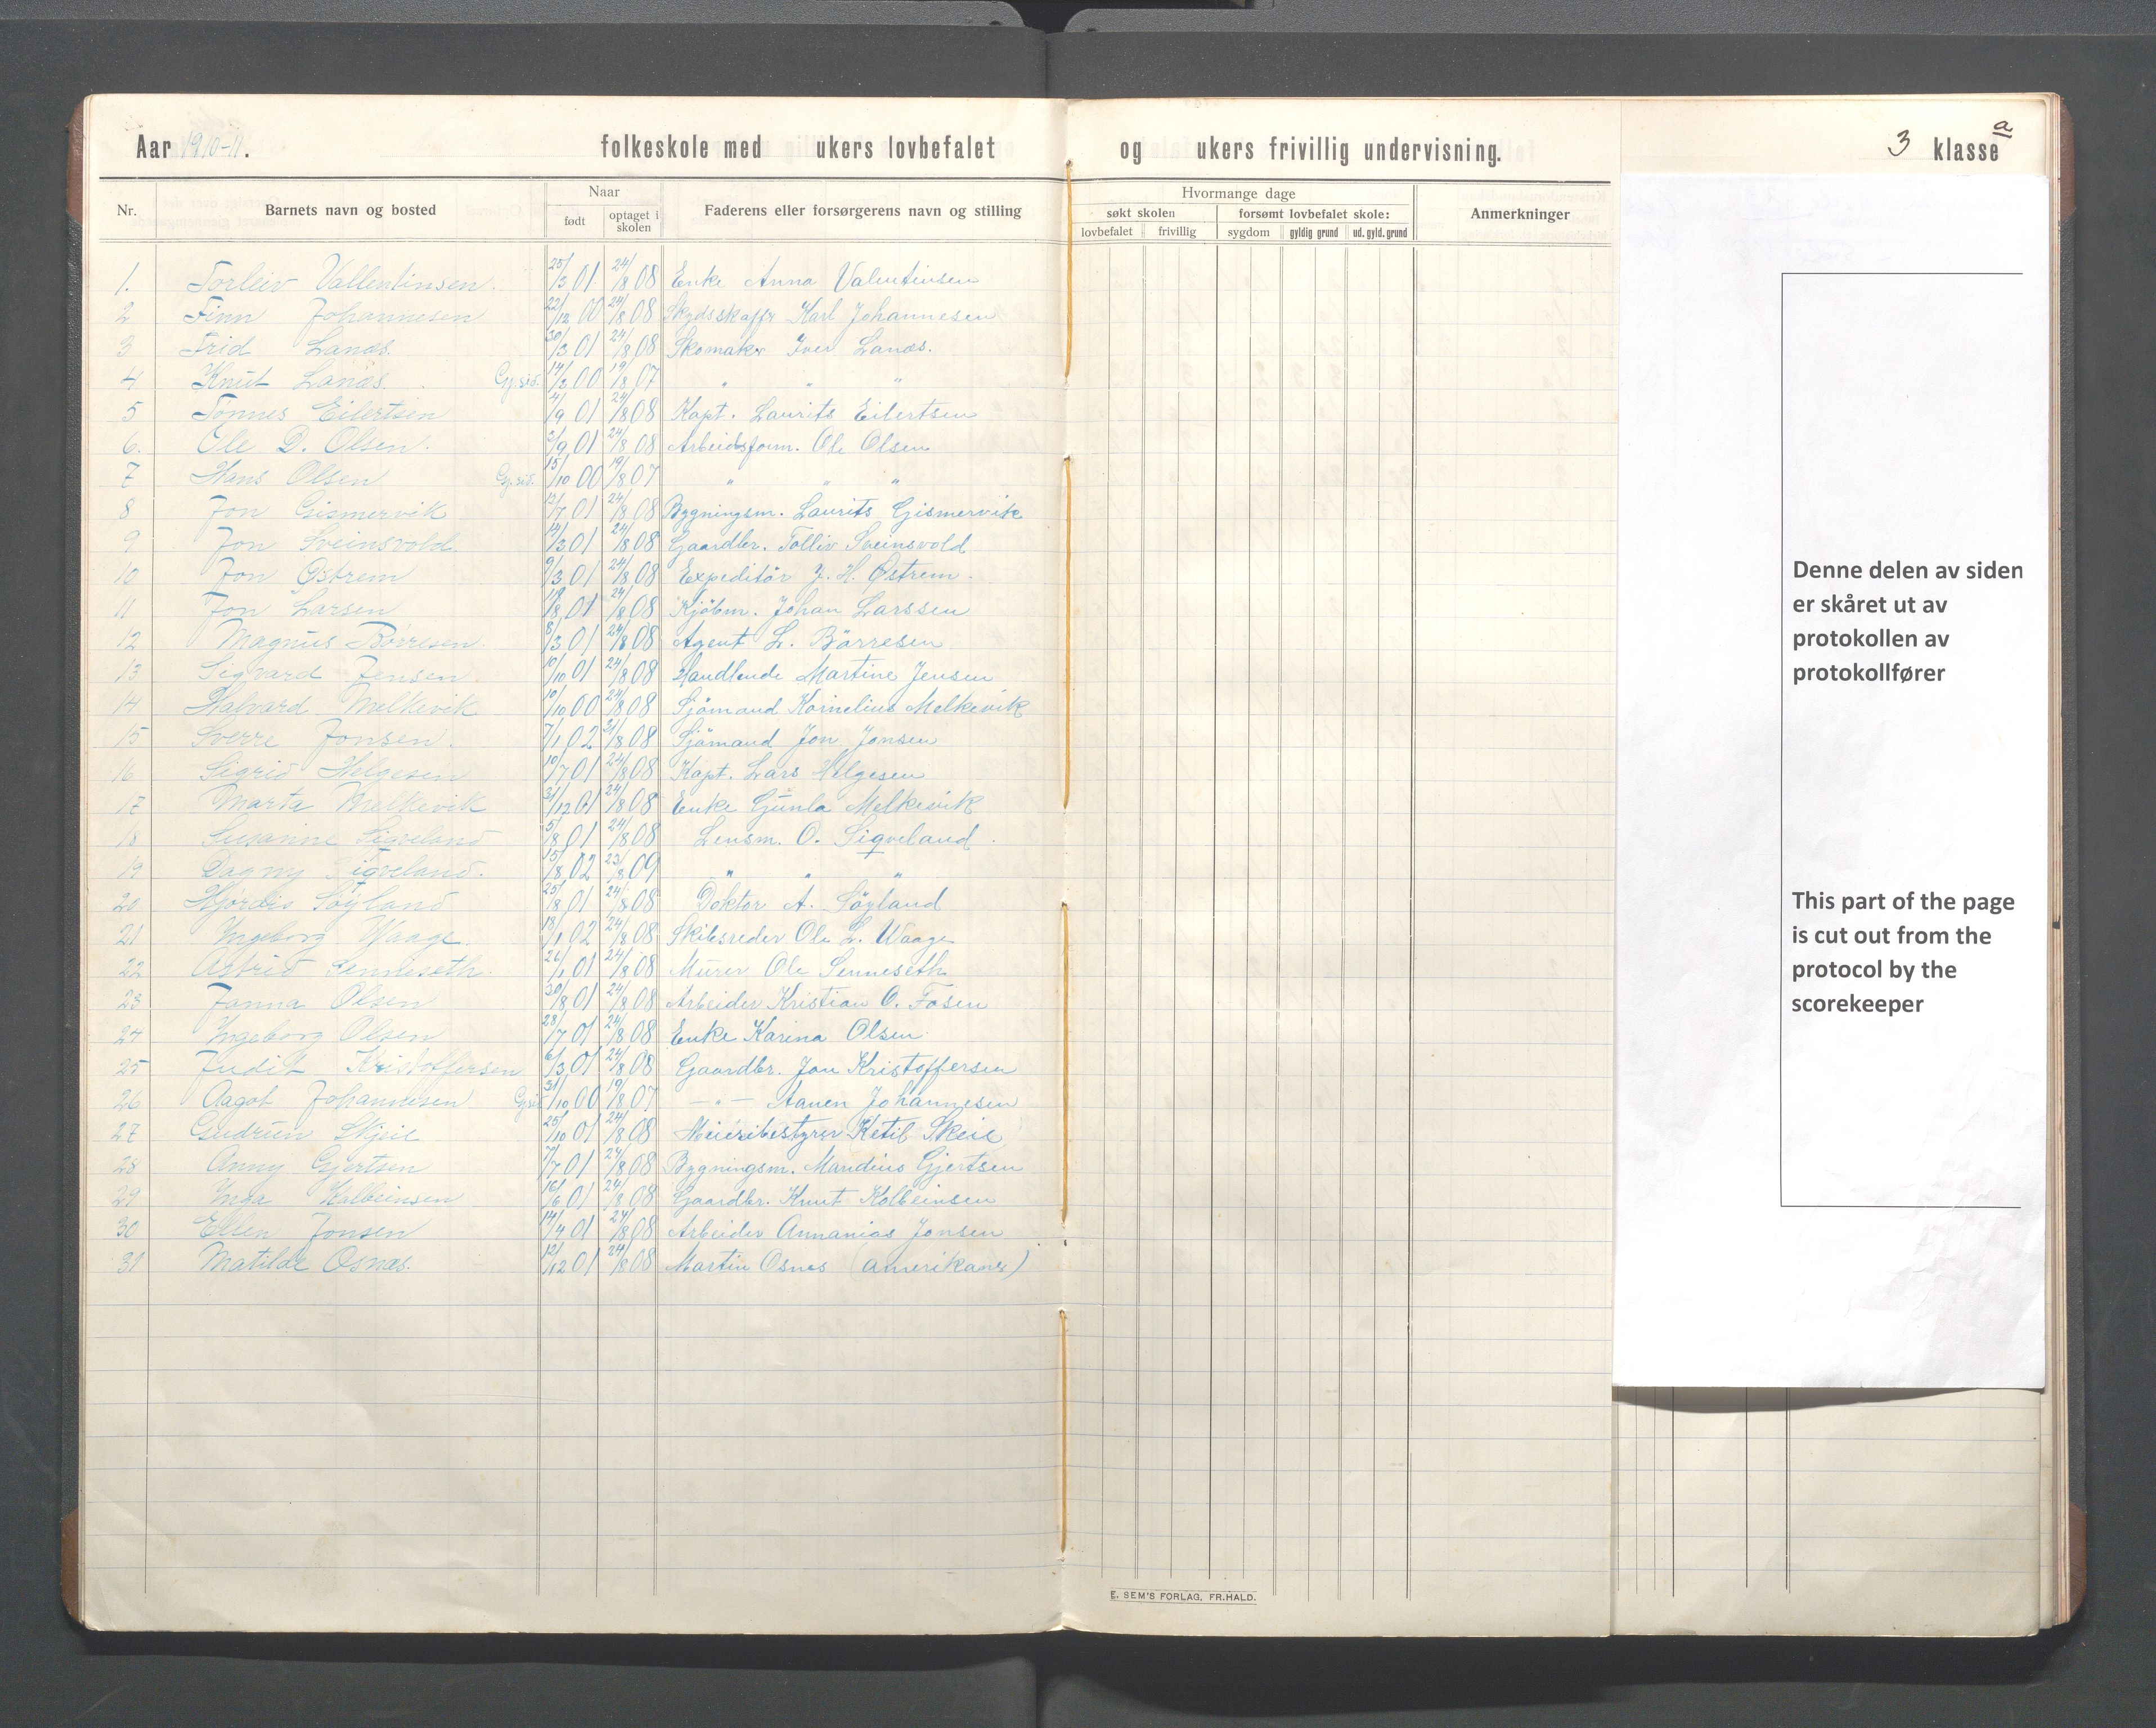 Aar 1910-11. folkeskole med ukers lovbefalet og ukers frivillig undervisning. 3 klasse a
Nr. Barnets navn og bosted Naar født optaget i skolen Faderens eller forsørgerens navn og stilling Hvormange dage søkt skolen lovbefalet frivillig forsømt lovbefalet skole: sygdom gyldig grund ud. gyld. grund Anmerkninger
1. Torleiv Vallentinsen. 25/3 01 24/8 08 Enke Anna Valentinsen
2 Finn Johannesen 22/12 00 24/8 08 Skydsskaffer Karl Johannesen
3 Frid Lanæs. 30/3 01 24/8 08 Skomaker Iver Lanæs.
4 Knut Lanæs. Gj.sid. 14/2 00 19/8 07 " " "
5 Tønnes Eilertsen 4/9 01 24/8 08 Kapt. Laurits Eilertsen
6. Ole D. Olsen. 2/9 01 24/8 08 Arbeidsform. Ole Olsen
7 Hans Olsen Gj.sid. 15/10 00 19/8 07 " " "
8 Jon Gismervik 12/7 01 24/8 08 Bygningsm. Laurits Gismervik
9 Jon Sveinsvold 14/3 01 24/8 08 Gaardbr. Tolliv Sveinsvold
10 Jon Østrem 9/3 01 24/8 08 Expeditör J. H. Østrem.
11 Jon Larsen /8 01 24/8 08 Kjöbm. Johan Larssen
12 Magnus Börresen 8/3 01 24/8 08 Agent L. Börresen
13 Sigvard Jensen. 10/10 01 24/8 08 Handlende Martine Jensen
14 Halvard Melkevik 10/10 00 24/8 08 Sjömand Kornelius Melkevik
15 Sverre Jonsen. 7/1 02 31/8 08 Sjömand Jon Jonsen
16 Sigrid Helgesen 10/7 01 24/8 08 Kapt. Lars Helgesen
17 Marta Melkevik 31/12 01 24/8 08 Enke Gunla Melkevik
18 Susanne Sigveland 5/8 01 24/8 08 Lensm. O. Sigveland.
19 Dagny Sigveland. 15/8 02 23/8 09 " " "
20 Hjørdis Söyland 25/8 01 24/8 08 Doktor A. Söyland
21 Ingeborg Waage. 18/1 02 24/8 08 Skibsreder Ole L. Waage
22 Astrid Senneseth. 26/1 01 24/8 08 Murer Ole Senneseth
23 Janna Olsen 30/8 01 24/8 08 Arbeider Kristian O. Fosen
24 Ingeborg Olsen 28/7 01 24/8 08 Enke Karina Olsen
25 Judit Kristoffersen 6/3 01 24/8 08 Gaardbr. Jon Kristoffersen
26 Aagot Johannesen Gj.sid 31/10 00 19/8 07 — " — Aanen Johannesen
27 Gudrun Skjeie 25/10 01 24/8 08 Meieribestyrer Ketil Skeie
28 Anny Gjertsen 7/7 01 24/8 08 Bygningsm. Mandius Gjertsen
29 Inga Kolbeinsen 16/6 01 24/8 08 Gaardbr. Knut Kolbeinsen
30 Ellen Jonsen 14/4 01 24/8 08 Arbeider Annanias Jonsen
31 Matilde Osnæs. 12/12 01 24/8 08 Martin Osnes (amerikaner)
Denne delen av siden
er skåret ut av
protokollen av
protokollfører
This part of the page
is cut out from the
protocol by the
scorekeeper
E. SEM'S FORLAG, FR.HALD.